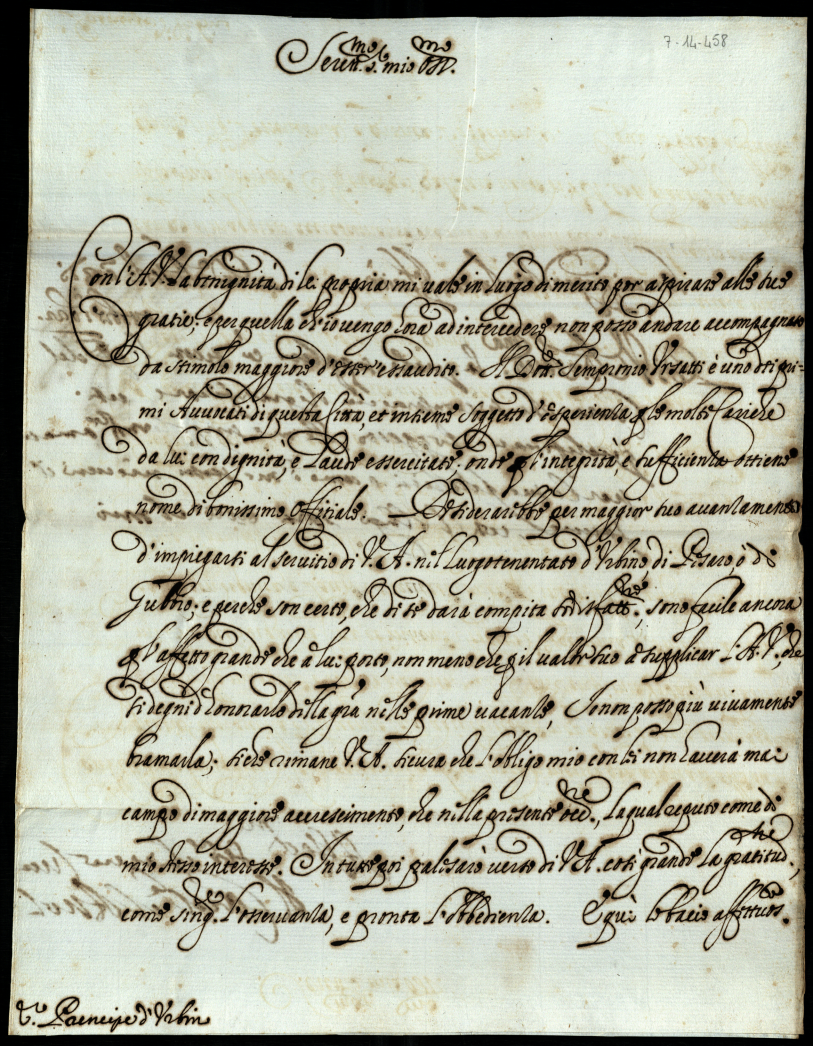 7-14-458
Seren.mo S. mio oss.mo
Con l'A.V. la benignità di lei propria mi vale in luogo di merito per aspirare alle sue
gratie; e per quella ch'io vengo hora ad intercedere non posso andare accompagnato
da stimolo maggiore d'esser'essaudito. Il Dott.re Sempronio Vrsatti è uno dei pri=
mi Auuocati di questa Città, et insieme soggetto d'esperienza p le molte Cariche
da lui con dignità, e laude essercitate; onde p l'integrità, e sufficienza ottiene
nome di bonissimo Offitiale. Desiderarebbe per maggior suo auanzamento
d'impiegarsi al seruitio di V. A. nel Luogotenentato d'Vrbino di Pesaro, ò di
Gubbio; e perche son certo, che di se darà compita satisfatt.ne, sono facile ancora
p l'affetto grande che à lui porto, non meno che p il valor suo à supplicar l'A.V., che
si degni d'honorarlo della gra nelle prime vacanze, Io non posso più viuamente
bramarla; siche rimane V. A. sicura che l'obligo mio con lei non hauerà mai
campo di maggiore accrescimento, che nella presente occ.ne, la qual reputo come di
mio stesso interesse. In tutte poi palesarò verso di V A. così grande la gratitud.ne,
come sing.re l'osseruanza, e pronta l'obedienza. E quì le bacio affettuos.te
S.r Prencipe d'Vrbin